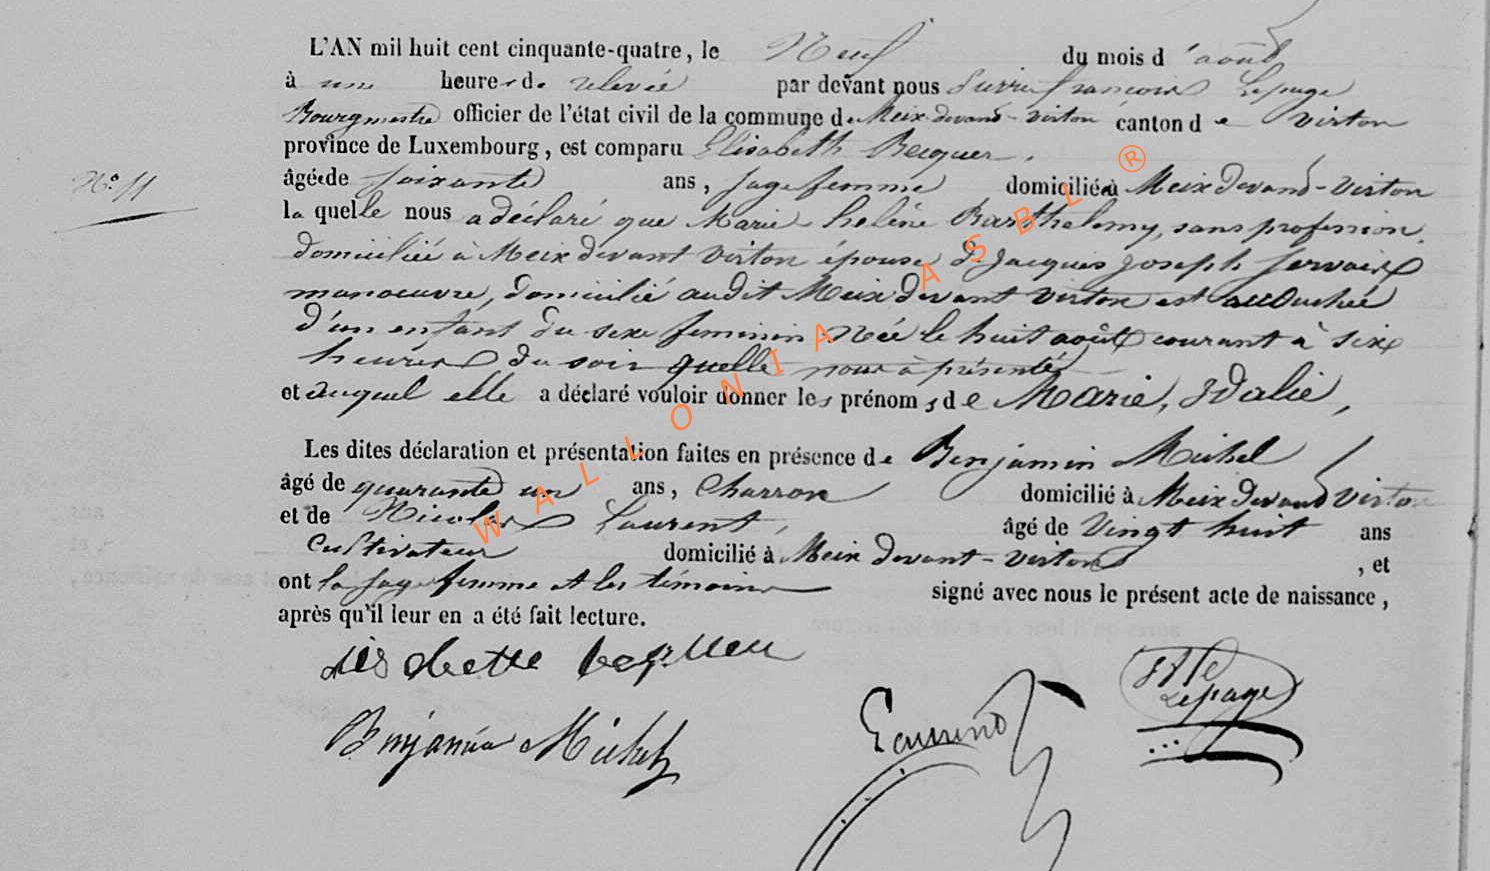 L'AN mil huit cent cinquante-quatre, le Neuf du mois d'août
à une heures de relevée par devant nous Pierre françois Lepage
Bourgmestre officier de l'état civil de la commune de Meix-devant-virton canton de virton
province de Luxembourg, est comparu Elisabeth Becquer.
N° 11
âgée de soixante ans, sage femme domiciliée à Meix devant-virton
laquelle nous a déclaré que Marie helène Barthelemy, sans profession,
domiciliée à Meix devant virton épouse de Jacques Joseph Servais
manoeuvre, domicilié audit Meix devant virton est accouchée
d'un enfant du sexe feminin née le huit août courant à six
heures du soir quelle nous à présenté
et auquel elle a déclaré vouloir donner les prénoms de Marie, Idalie,
Les dites déclaration et présentation faites en présence de Benjamin Michel
âgé de quarante un ans, Charron domicilié à Meix devant virton
et de Nicolas Laurent, âgé de vingt huit ans
Cultivateur domicilié à Meix devant-virton, et
ont la sage femme et les témoins signé avec nous le présent acte de naissance,
après qu'il leur en a été fait lecture.
Lepage
Benjamin Michel
WALLONIA ASBL ®